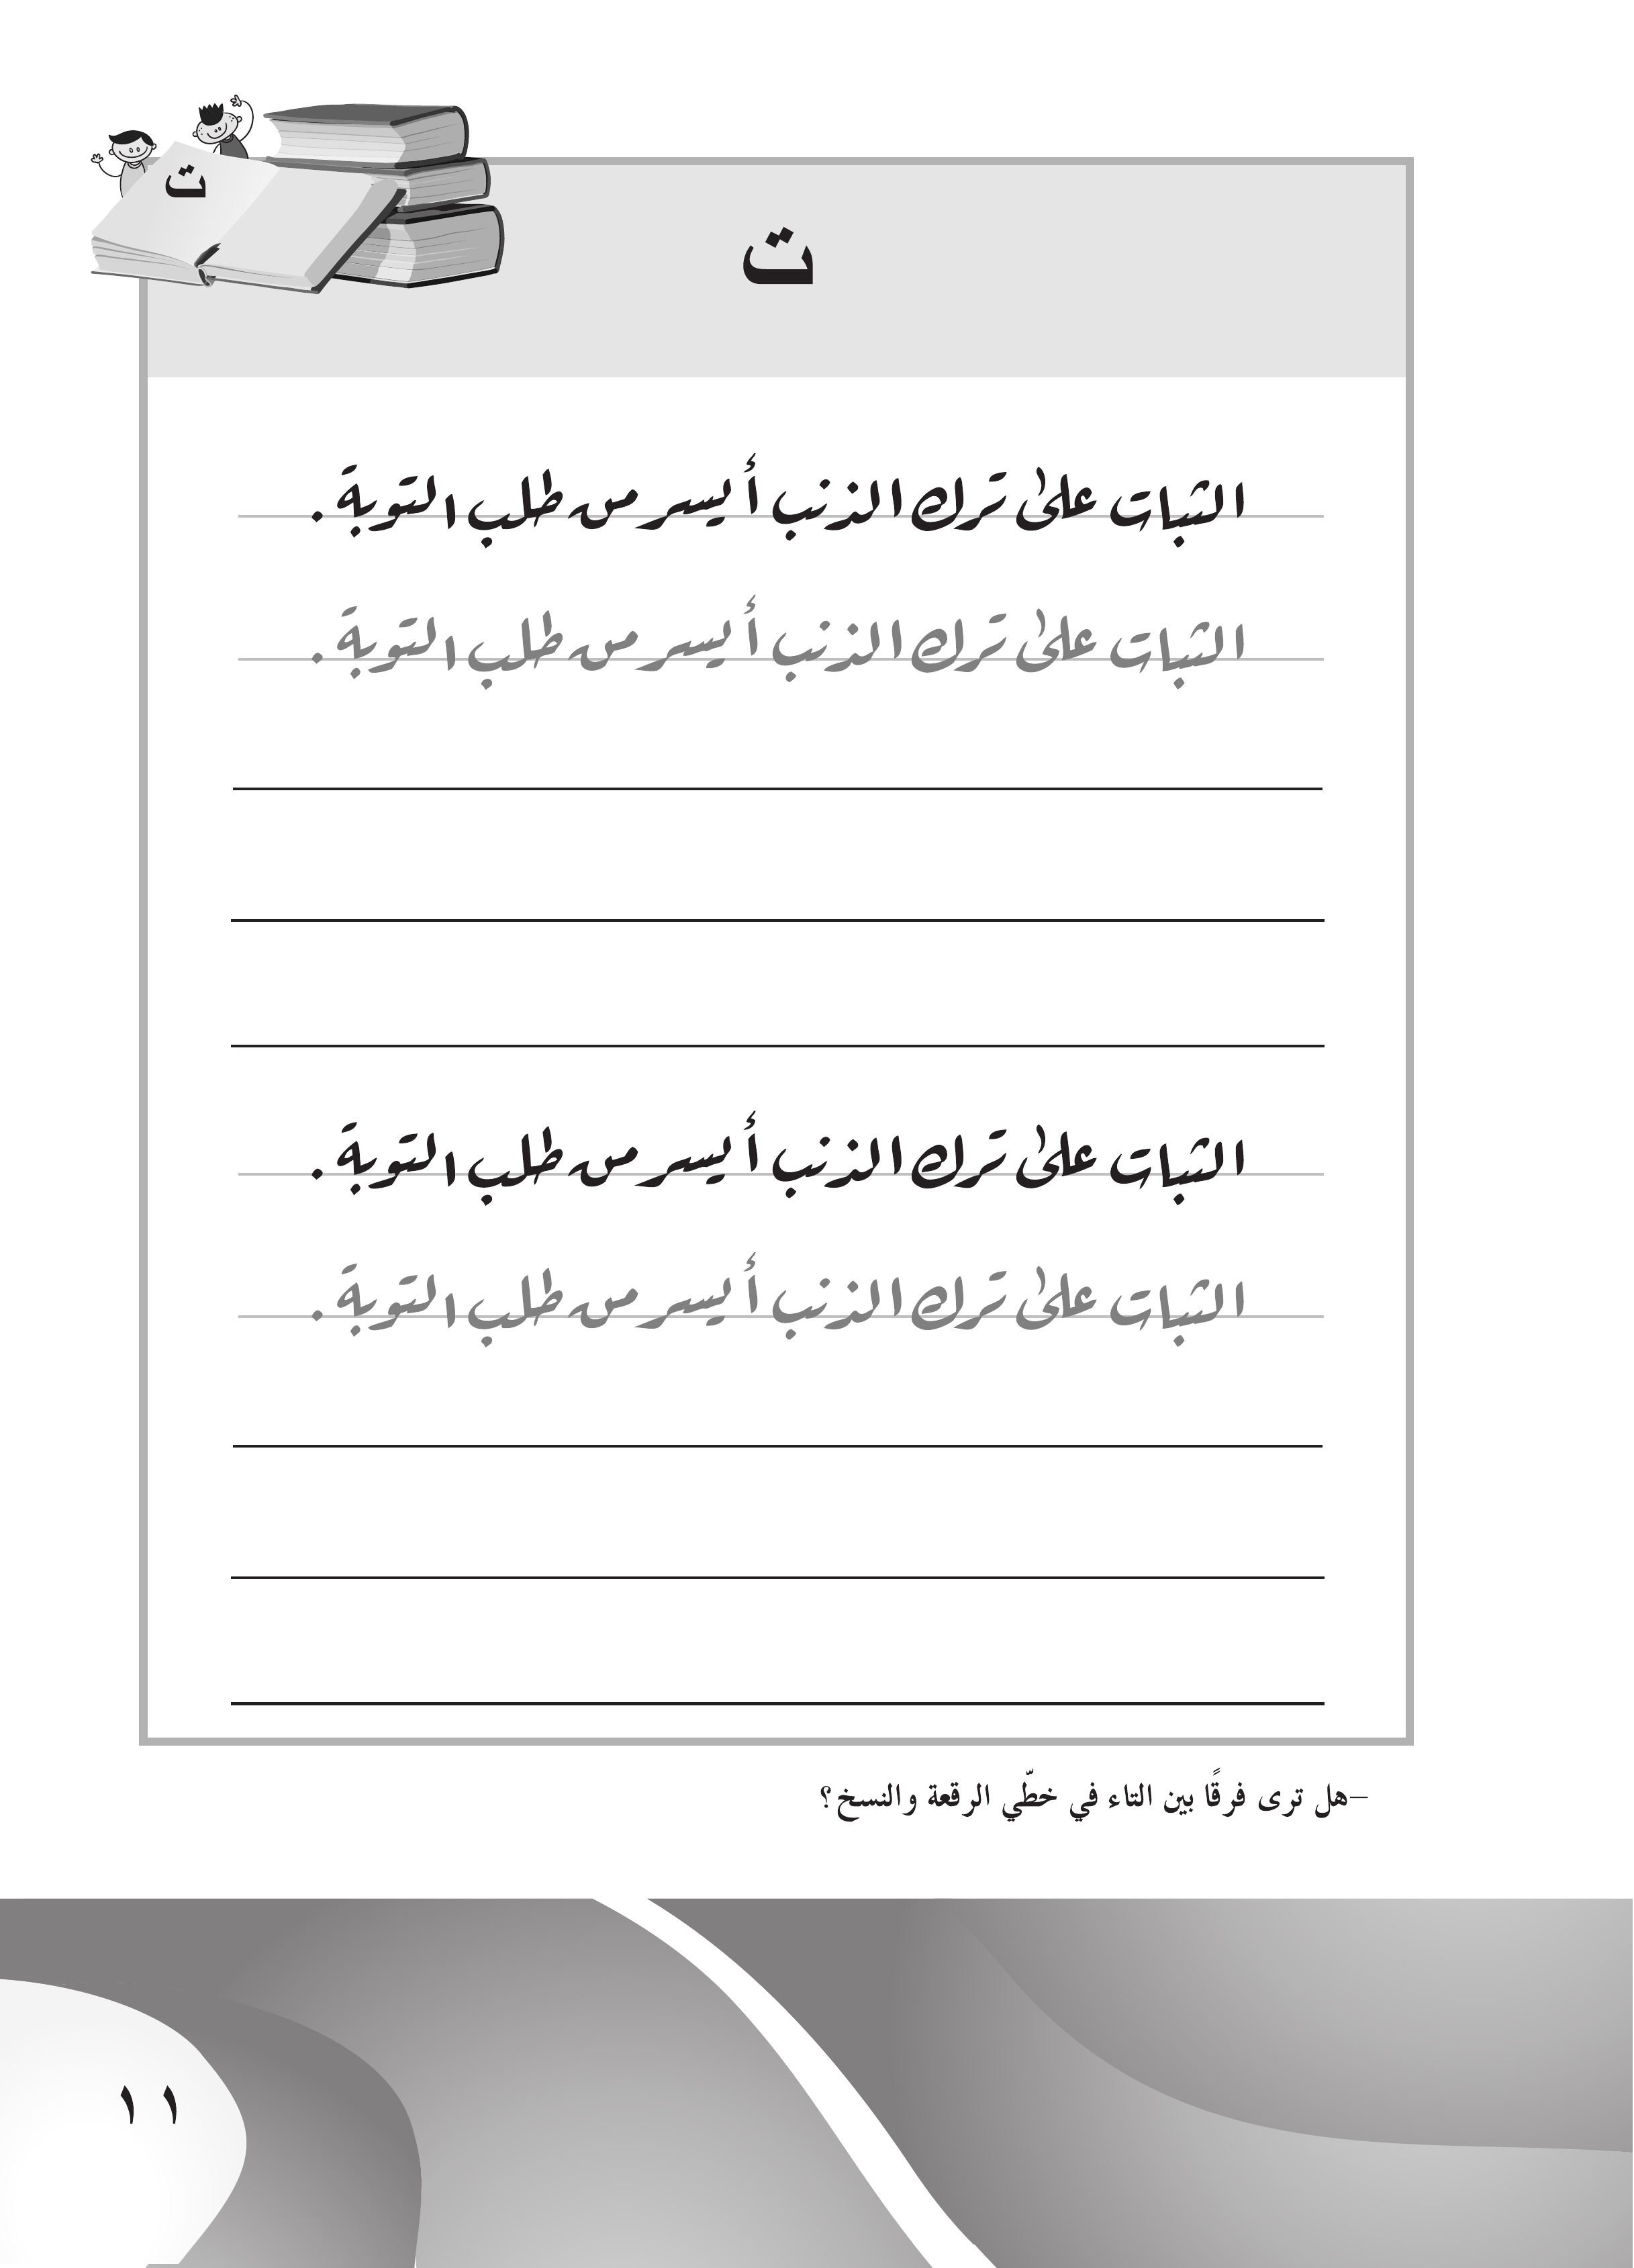 ت
ت
الثبات على ترك الذنب أيسر من طلب التوبة .
الثبات على ترك الذنب أيسر من طلب التوبة .
الثبات على ترك الذنب أيسر من طلب التوبة .
الثبات على ترك الذنب أيسر من طلب التوبة .
–هل ترى فرقًا بين التاء في خطّي الرقعة والنسخ؟
١١